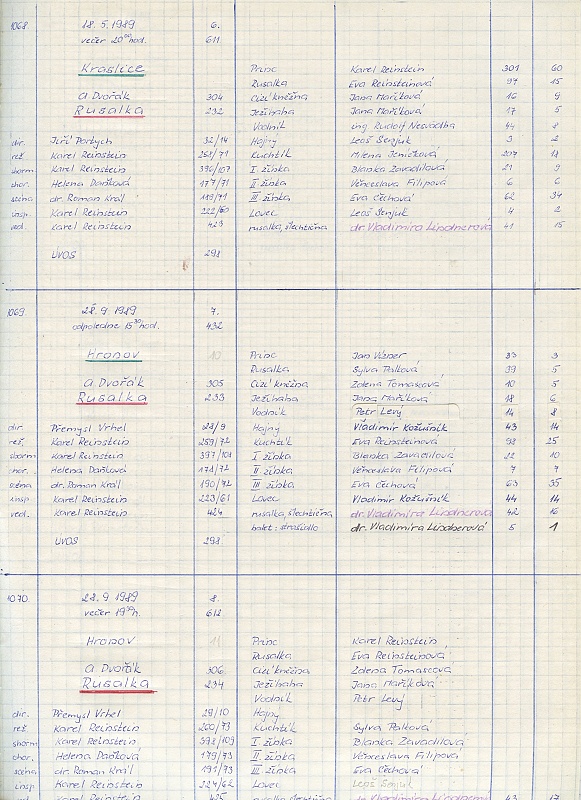 1068 18.5.1989 6.
večer 20⁰⁰hod. 611
Kraslice Princ Karel Reinstein 301 60
Rusalka Eva Reinsteinová 97 15
A Dvořák 304 Cizí kněžna Jana Maříková 16 9
Rusalka 232 Ježibaba Jana Maříková 17 5
Vodník ing Rudolf Nesvadba 44 8
dir. Jiří Portych 32/14 Hajný Leoš Senjuk 3 2
rež Karel Reinstein 258/71 Kuchtík Milena Jeníčková 207 18
sborm Karel Reinstein 396/107 I. žínka Blanka Zavadilová 21 9
chor. Helena Daňková 177/71 II. žínka Věnceslava Filipová 6 6
scéna dr. Roman Král 118/71 III žínka Eva Čechová 62 34
insp. Karel Reinstein 222/60 Lovec Leoš Senjuk 4 2
ved. Karel Reinstein 423 rusalka, šlechtična dr. Vladimíra Lindnerová 41 15
ÚVOS 298
1069 28.9.1989 7.
odpoledne 15³⁰hod. 432
Hronov 10 Princ Jan Vízner 33 3
Rusalka Sylva Palková 39 5
A Dvořák 305 Cizí kněžna Zdena Tomascová 10 5
Rusalka 233 Ježibaba Jana Maříková 18 6
Vodník Petr Levý 14 8
dir. Přemysl Vrhel 28/9 Hajný Vladimír Kožušník 43 14
rež. Karel Reinstein 259/72 Kuchtík Eva Reinsteinová 98 25
sborm. Karel Reinstein 397/108 I žínka Blanka Zavadilová 22 10
chor. Helena Daňková 178/72 II. žínka Věnceslava Filipová 7 7
scéna dr. Roman Král 190/72 III žínka Eva Čechová 63 35
insp Karel Reinstein 223/61 Lovec Vladimír Kožušník 44 14
ved. Karel Reinstein 424 rusalka, šlechtična dr. Vladimíra Lindnerová 42 16
balet: strašidlo dr. Vladimíra Lindnerová 5 1
ÚVOS 298
1070. 28.9 1989 8.
večer 19³⁰h. 612
Hronov 11 Princ Karel Reinstein
Rusalka Eva Reinsteinová
A Dvořák 306 Cizí kněžna Zdena Tomascová
Rusalka 234 Ježibaba Jana Maříková
Vodník Petr Levý
dir. Přemysl Vrhel 29/10 Hajný
rež Karel Reinstein 260/73 Kuchtík Sylva Palková
sborm Karel Reinstein 398/109 I. žínka Blanka Zavadilová
chor. Helena Daňková 179/73 II. žínka Věnceslava Filipová
scéna dr. Roman Král 191/73 III. žínka Eva Čechová
insp. Karel Reinstein 224/62 Lovec Leoš Senjuk
ved Karel Reinstein 425 rusalka šlechtična dr. Vladimíra Lindnerová 43 17